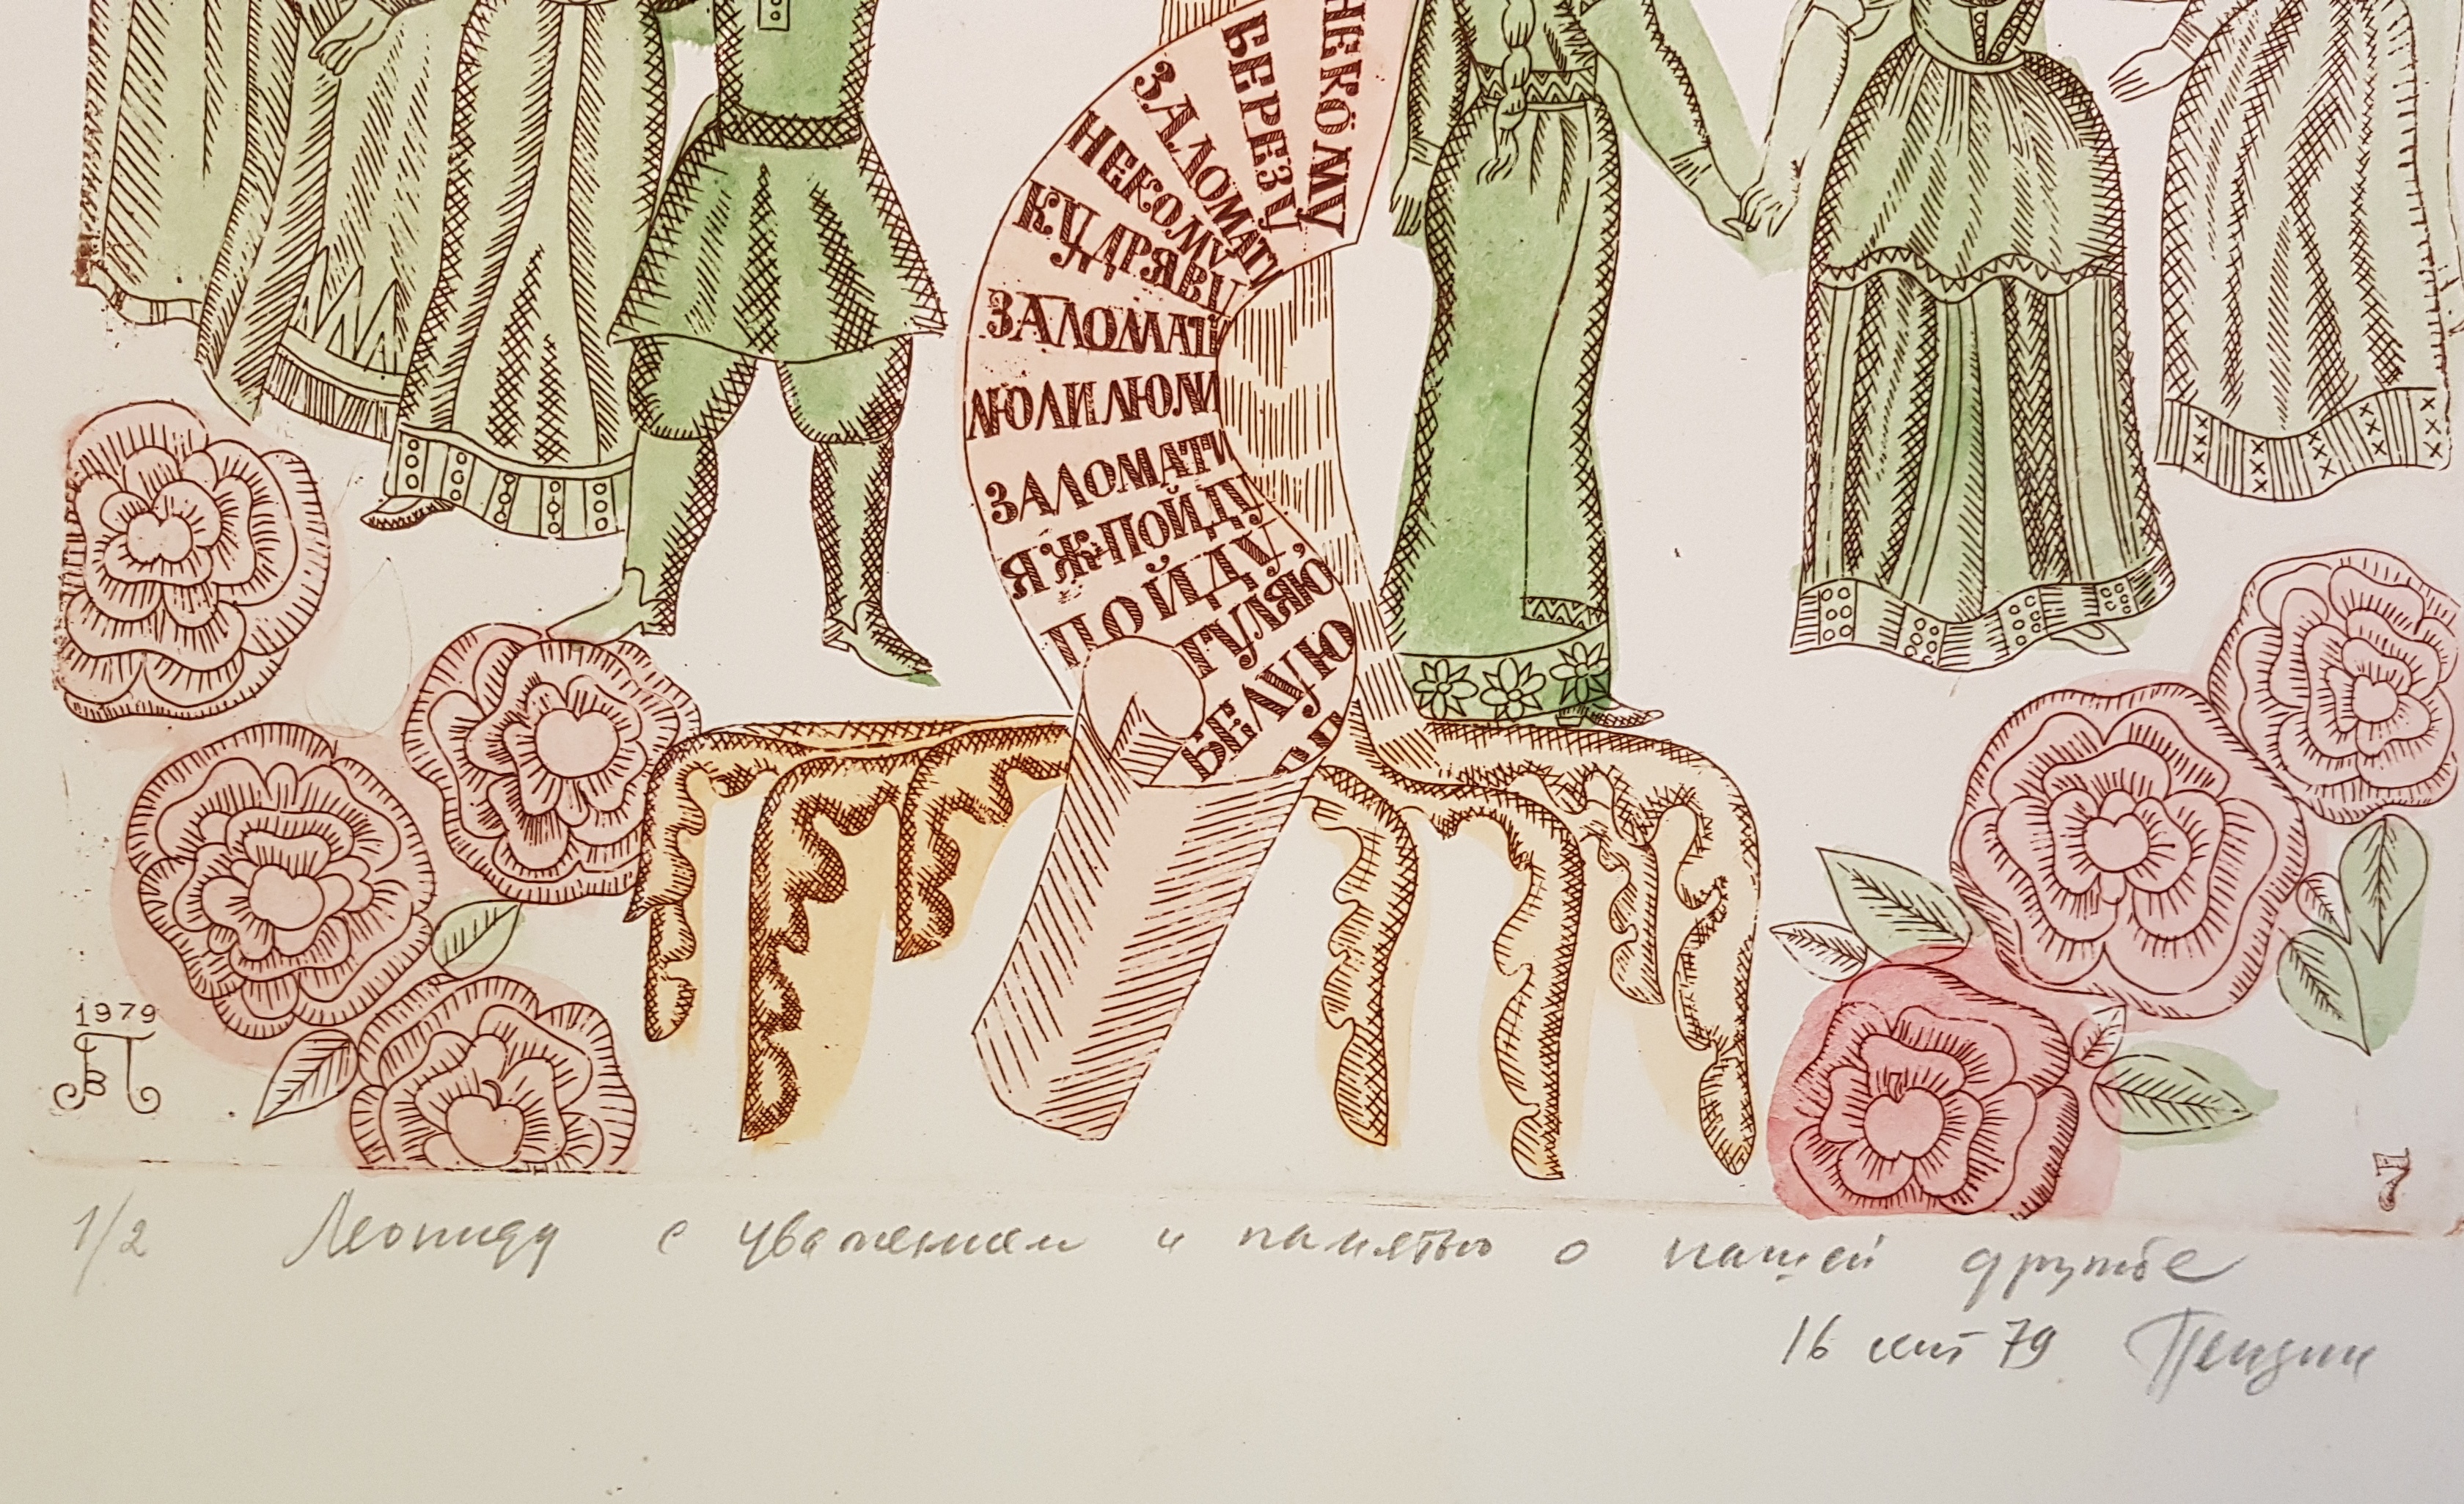 НЕКОМУ
БЕРЕЗУ
ЗАЛОМАТИ
НЕКОМУ
КУДРЯВУ
ЗАЛОМАТИ
ЛЮЛИ ЛЮЛИ
ЗАЛОМАТИ
Я Ж ПОЙДУ
ПОЙДУ,
ГУЛЯЮ
БЕЛУЮ
1979
1/2 Леониду с уважением и памятью о нашей дружбе
16 сент 79 Пензин